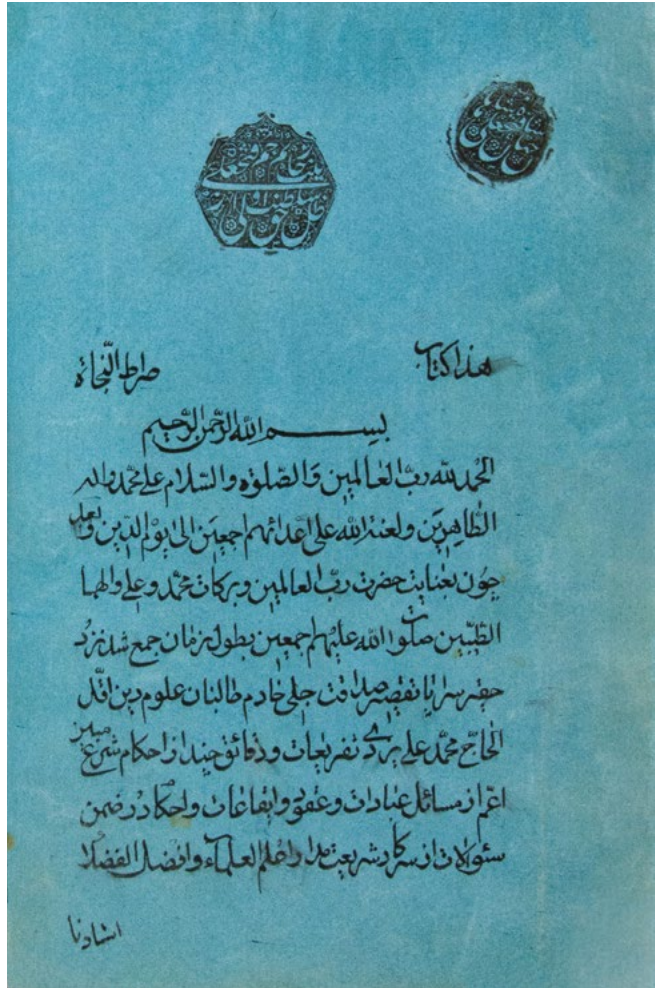 هذا کتاب صراط النّجاة
بسم الله الرّحمن الرّحیم
الحمد لله ربّ العالمین وَالصّلوة والسّلام علی محمّد واله
الطّاهرین ولعنة الله علی اعدائهم اجمعین الی یوم الدّین وبعد
چون بعنایت حضرت ربّ العالمین وبرکات محمّد وعلی والهما
الطّیّبین صلوات الله علیهم اجمعین بطول زمان جمع شد نزد
حقیر سراپا تقصیر صداقت جلی خادم طالبان علوم دین اقلّ
الحاجّ محمّد علی یزدی تفریعات ودقائق چند از احکام شرع مبین
اعم از مسائل عبادات وعقود وایقاعات واحکام در ضمن
سئوالات از سرکار شریعتمدار اعلم العلماء وافضل الفضلا
استادنا